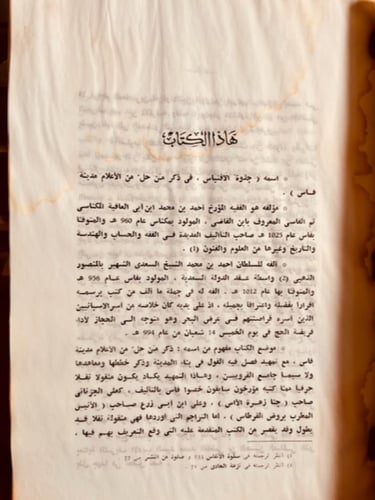 هَاذَا الْكِتَابُ
¤ اسمه ( جذوة الاقتباس ، فى ذكر من حل من الأعلام مدينة
فاس ) .
¤ مؤلفه هو الفقيه المؤرخ احمد بن محمد ابن أبى العافية المكناسى
ثم الفاسى المعروف بابن القاضى ، المولود بمكناس عام 960 هـ والمتوفا
بفاس عام 1025 هـ صاحب التآليف العديدة فى الفقه والحساب والهندسة
والتاريخ وغيرها من العلوم والفنون (1) .
¤ الفه للسلطان احمد بن محمد الشيخ السعدى الشهير بالمنصور
الذهبى (2) واسطة عقد الدولة السعدية ، المولود بفاس عام 956 هـ
والمتوفا بها عام 1012 هـ ، الفه له فى جملة ما ألف من كتب برسمه
اقرارا بفضله واعترافا بجميله ، اذ على يديه كان خلاصه من أسر الاسبانيين
الذين أسره قراصنتهم فى عرض البحر وهو متوجه الى الحجاز لأداء
فريضة الحج فى يوم الخميس 14 شعبان من عام 994 هـ .
¤ موضع الكتاب مفهوم من اسمه : ذكر من حل من الأعلام مدينة
فاس ، مع تمهيد فصل فيه القول فى بناء المدينة وذكر خططها ومعاهدها
ولا سيما جامع القرويين ، وهاذا التمهيد يكاد يكون منقولا نقلا
حرفيا مما كتبه مؤرخون سابقون خصوا فاس بالتأليف ، كعلى الجزنائى
صاحب ( جنا زهرة الآس ) ، وعلى ابن أبى زرع صاحب ( الأنيس
المطرب بروض القرطاس ) ، أما التراجم التى أوردها فهى منقولة نقلا قد
يطول وقد يقصر عن الكتب المتقدمة عليه التى وقع التعريف بهم فيها .
1) انظر ترجمته فى
2) انظر ترجمته فى نزهة الحادى ص